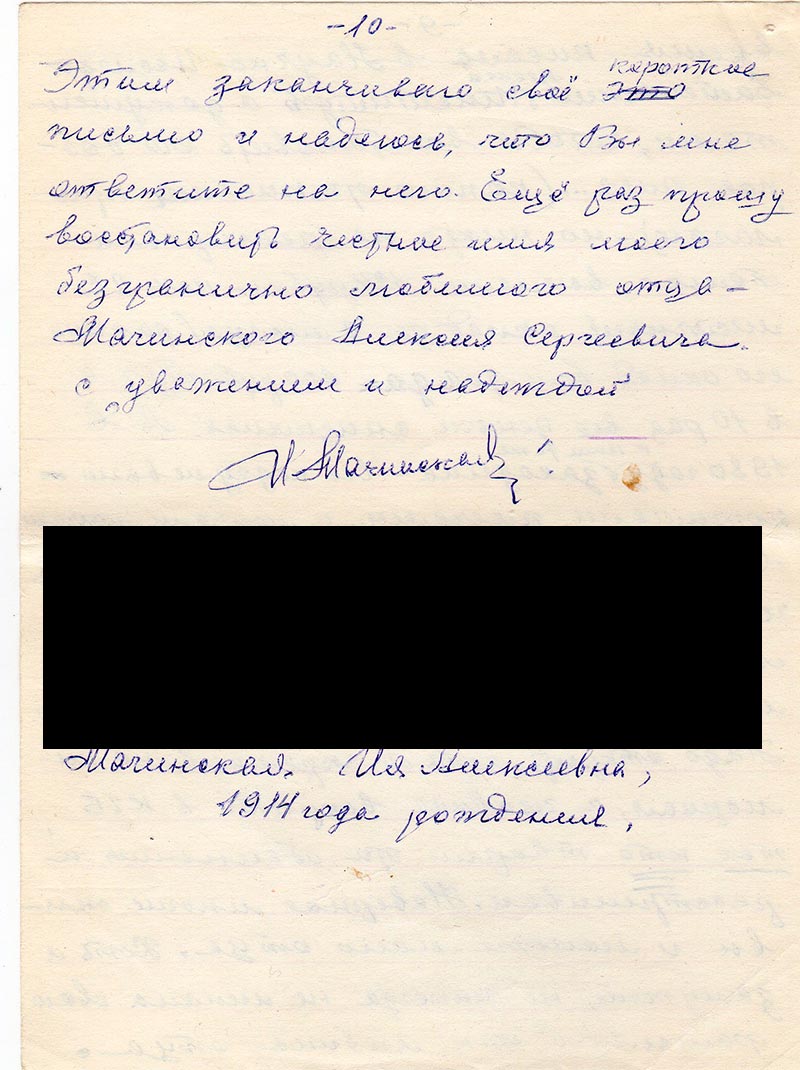 -10-
Этим заканчиваю своё короткое ~~Это~~
письмо и надеюсь, что Вы мне
ответите на него. Ещё раз прошу
восстановить честное имя моего
безгранично любимого отца –
Мачинского Алексея Сергеевича.
с уважением и надеждой
И Мачинская
Мачинская Ия Алексеевна,
1914 года рождения.